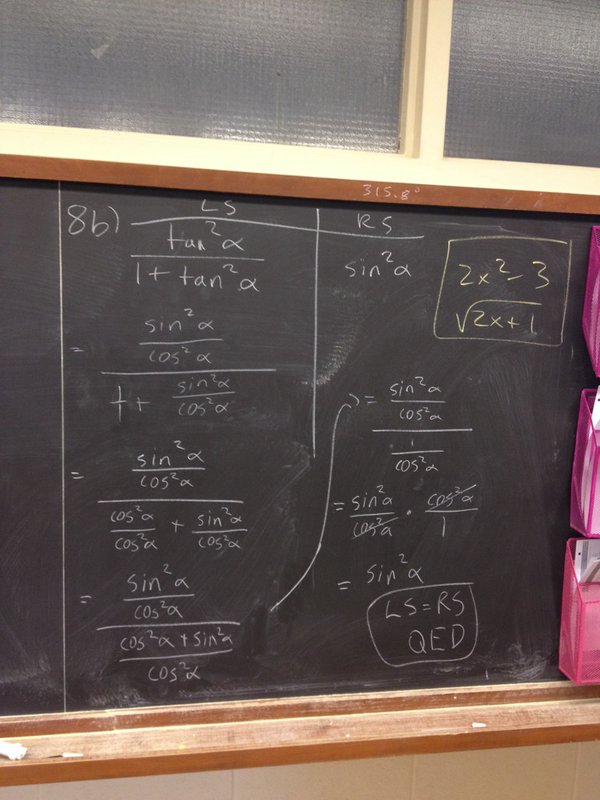 315.8°
8b) LS RS
tan²α / 1 + tan²α
sin²α
= sin²α/cos²α / 1 + sin²α/cos²α
= sin²α/cos²α / cos²α/cos²α + sin²α/cos²α
= sin²α/cos²α / (cos²α + sin²α)/cos²α
= sin²α/cos²α / 1/cos²α
= sin²α/cos²α · cos²α/1
= sin²α
LS = RS
QED
2x² - 3
√2x + 1